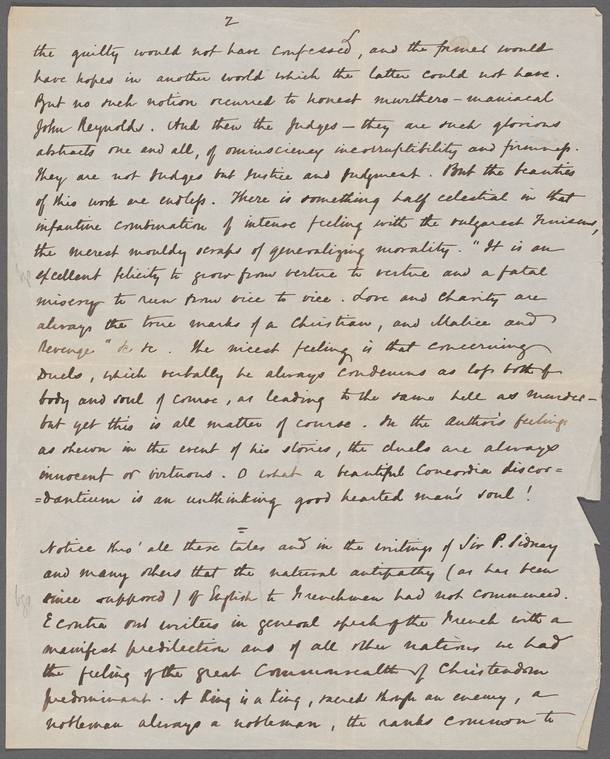 2
the guilty would not have confessed, and the former would
have hopes in another world which the latter could not have.
But no such notion occurred to honest murthero-maniacal
John Reynolds. And then the Judges – they are such glorious
abstracts one and all, of omnisciency incorruptibility and firmness.
They are not Judges but Justice and Judgment. But the beauties
of this work are endless. There is something half celestial in that
infantine combination of intense feeling with the vulgarest truisms,
the merest mouldy scraps of generalizing morality. "It is an
excellent felicity to grow from vertue to vertue and a fatal
misery to run from vice to vice. Love and Charity are
always the true marks of a Christian, and Malice and
Revenge" &c &c. The nicest feeling is that concerning
Duels, which verbally he always condemns as loss both of
body and soul of course, as leading to the same hell as murder –
but yet this is all matter of course. In the Author's feelings
as shewn in the event of his stories, the duels are always
innocent or virtuous. O what a beautiful Concordia discor=
=dantium is an unthinking good hearted man's soul!
Notice thro' all these tales and in the writings of Sir P. Sidney
and many others that the natural antipathy (as has been
since supposed) of English to Frenchmen had not commenced.
E contra our writers in general speak of the French with a
manifest predilection and of all other nations we had
the feeling of the great Commonwealth of Christendom
predominant. A King is a King, sacred though an enemy, a
nobleman always a nobleman, the ranks common to